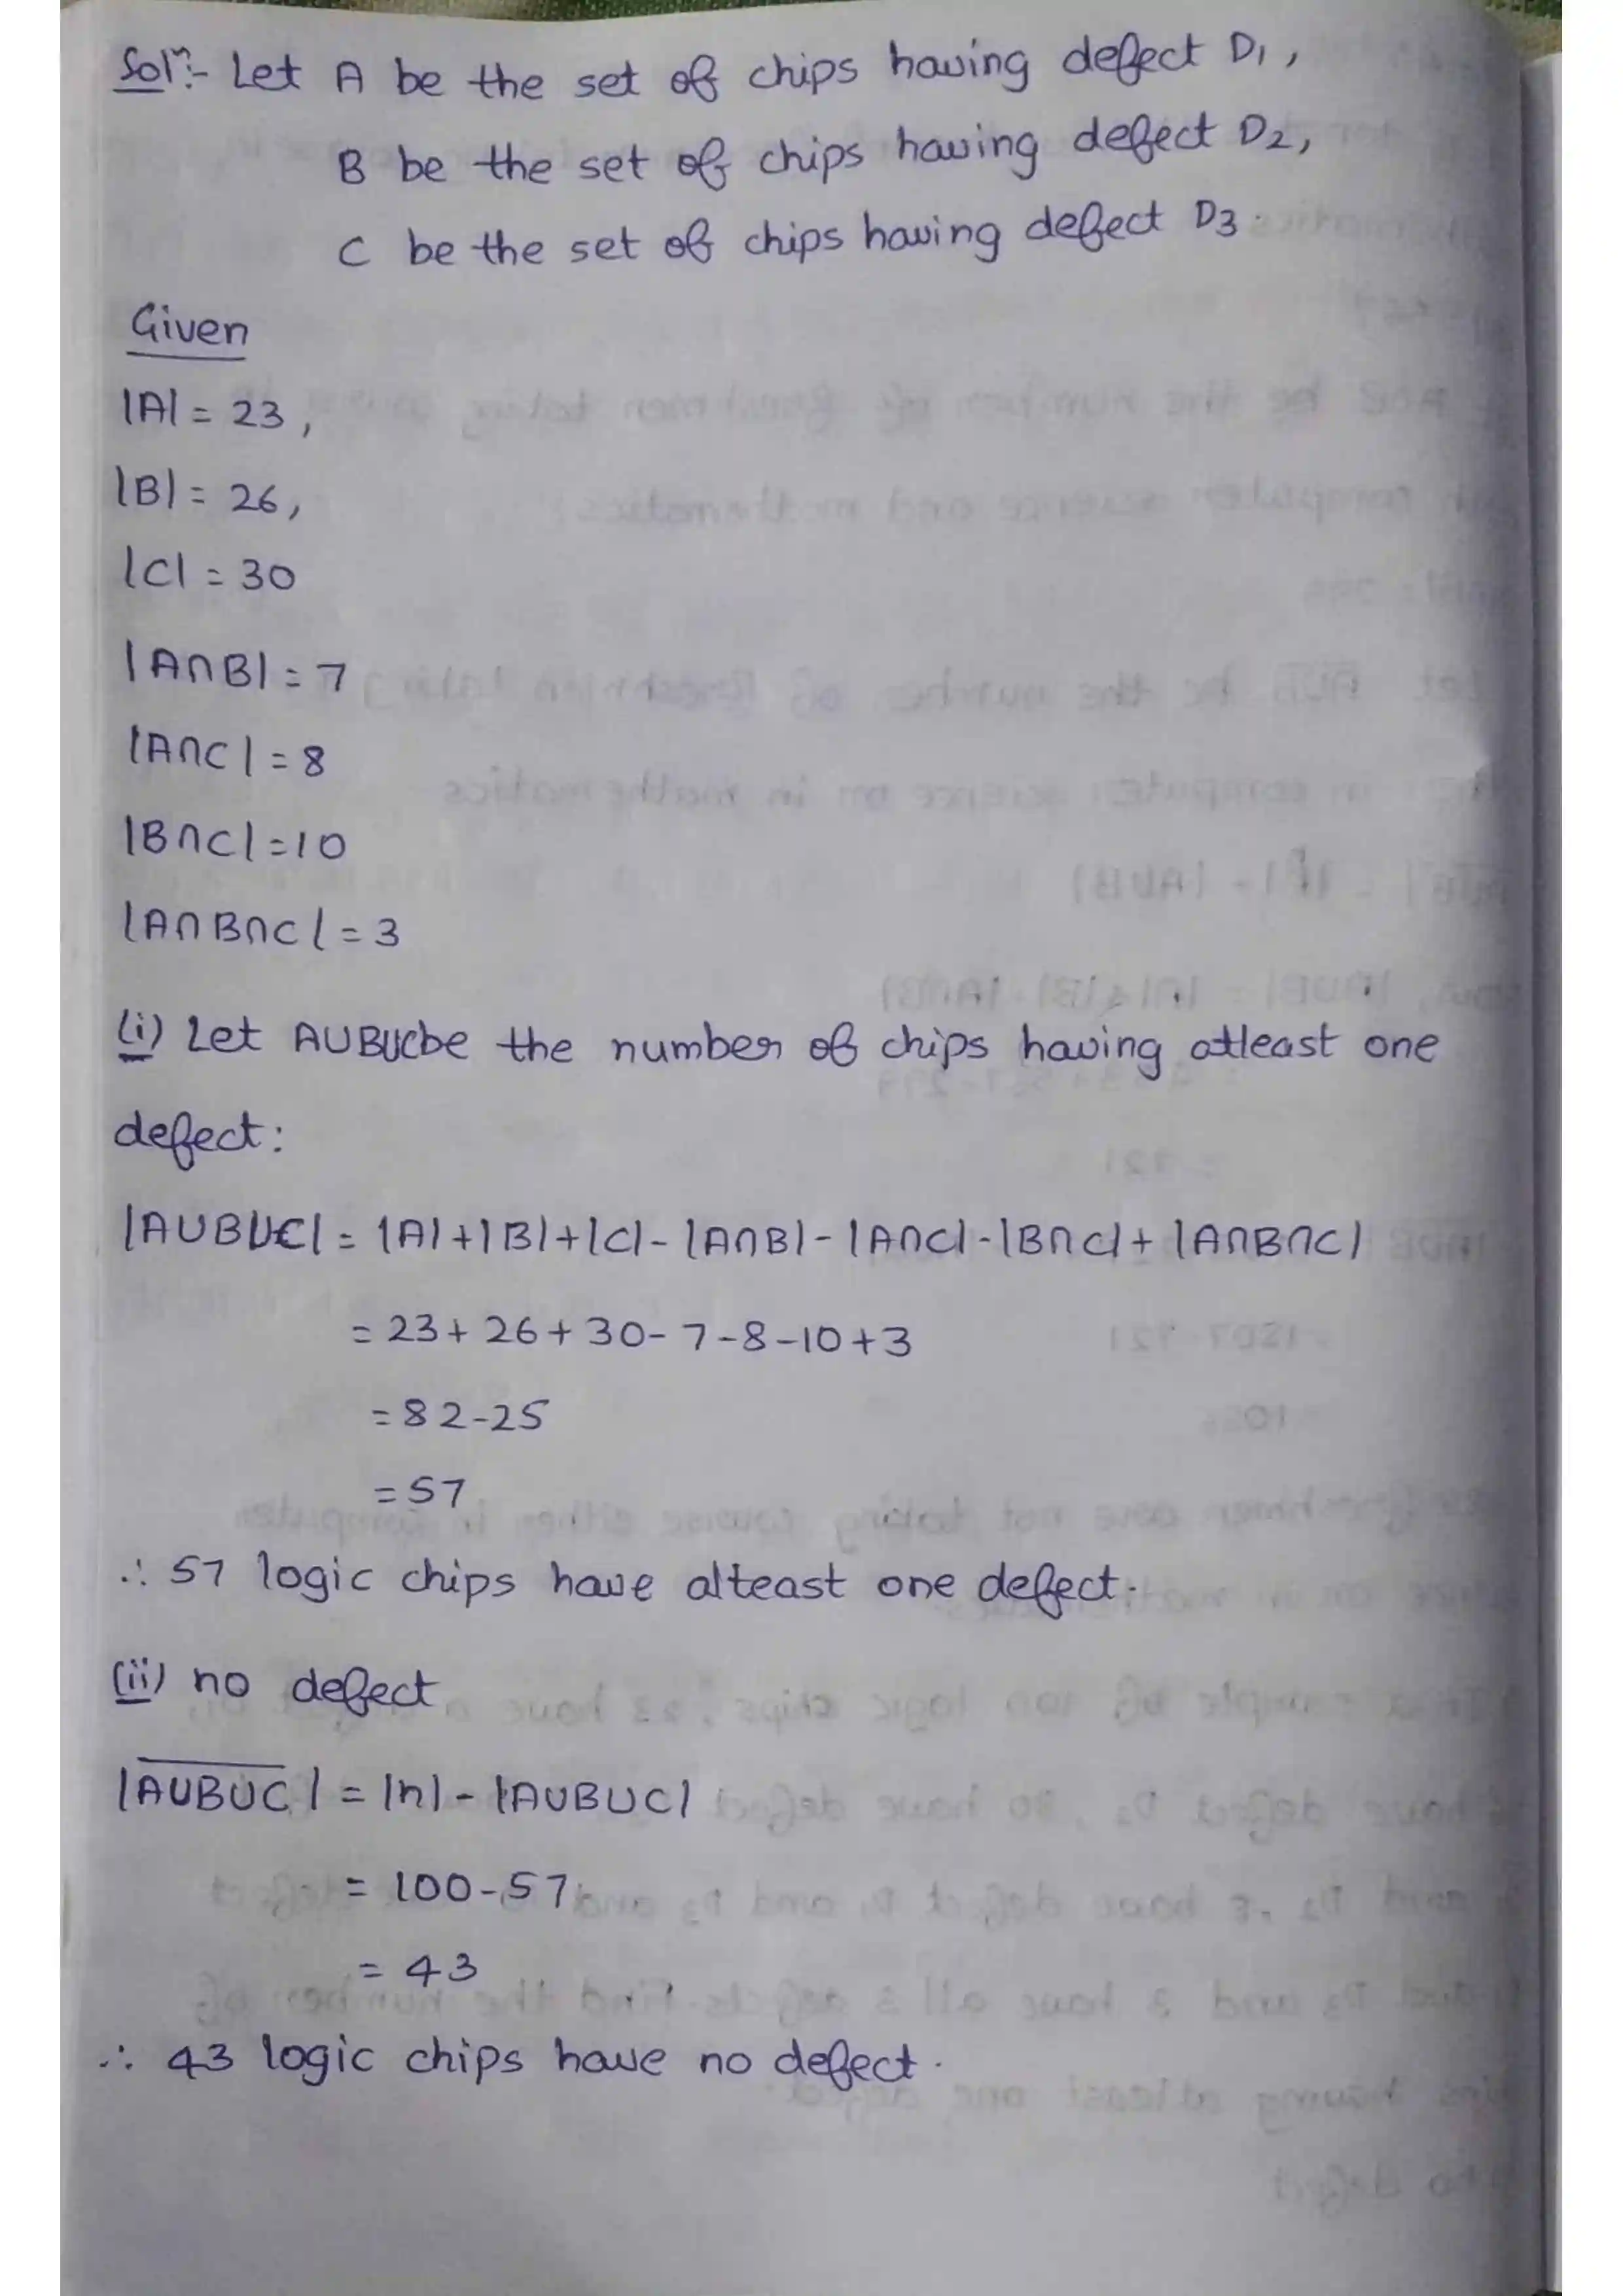 Solⁿ:- Let A be the set of chips having defect D1,
B be the set of chips having defect D2,
C be the set of chips having defect D3.
Given
|A| = 23,
|B| = 26,
|C| = 30
|A∩B| = 7
|A∩C| = 8
|B∩C| = 10
|A∩B∩C| = 3
(i) Let AUBUC be the number of chips having atleast one
defect:
|AUBUC| = |A|+|B|+|C|- |A∩B|- |A∩C| -|B∩C|+ |A∩B∩C|
= 23+ 26+ 30- 7-8-10+3
= 82-25
= 57
∴ 57 logic chips have alteast one defect.
(ii) no defect
|A̅U̅B̅U̅C̅| = |n| - |AUBUC|
= 100-57
= 43
∴ 43 logic chips have no defect.